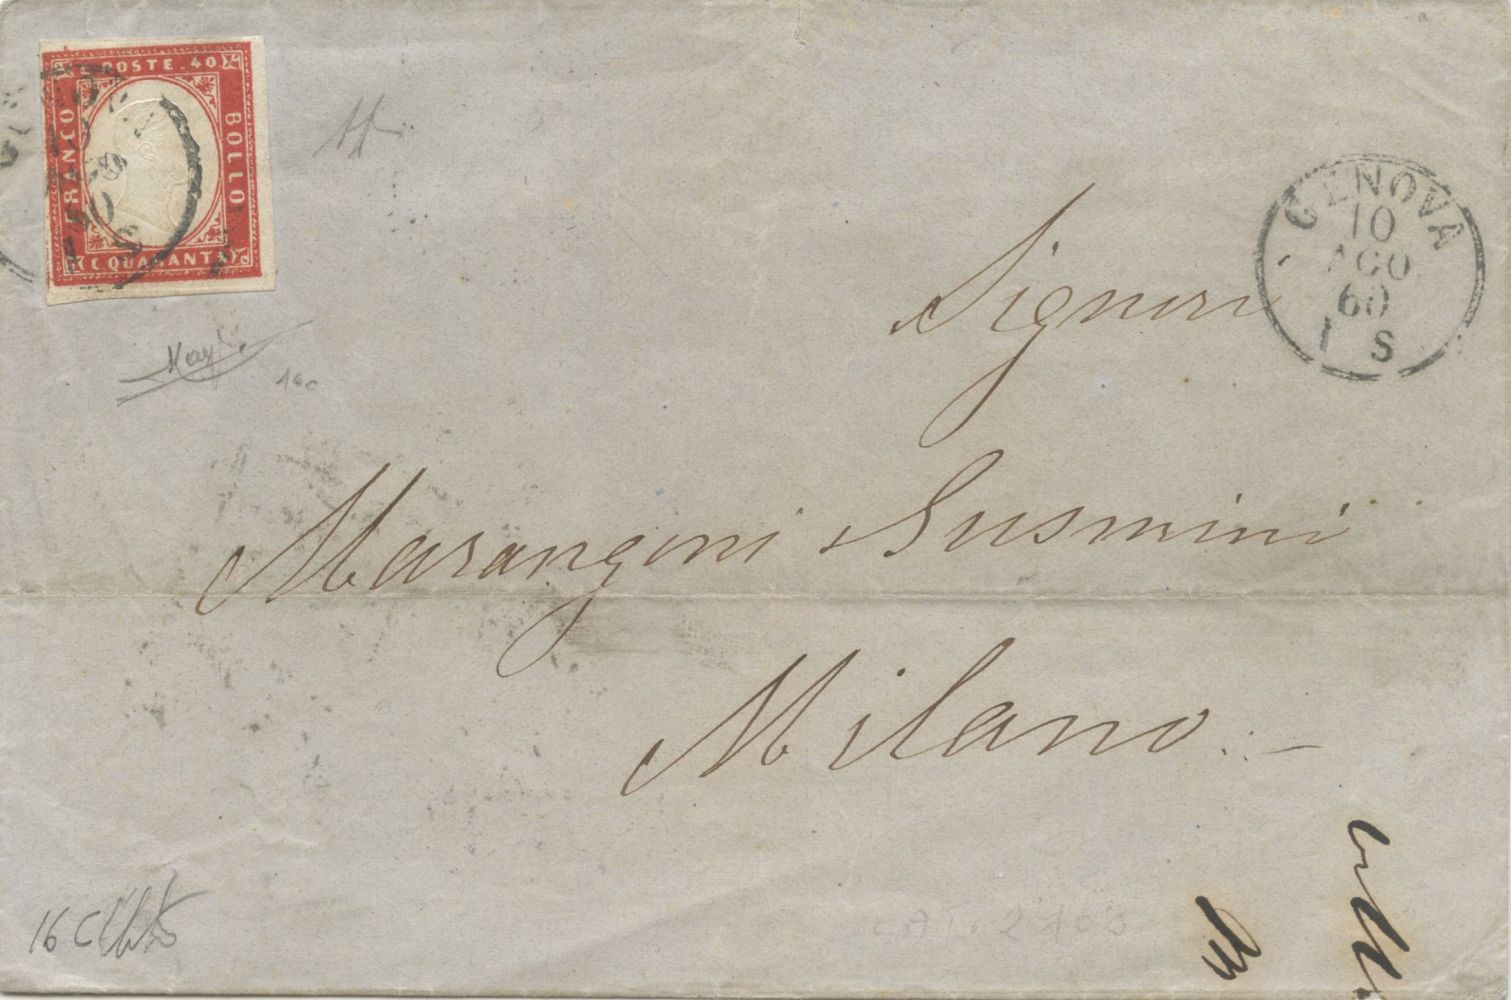 POSTE. 40
FRANCO
BOLLO
C. QUARANTA
GENOVA
10
AGO
60
1 S
Signori
Marangoni Susmini
Milano.
16 c
16 C
CAT. 2400